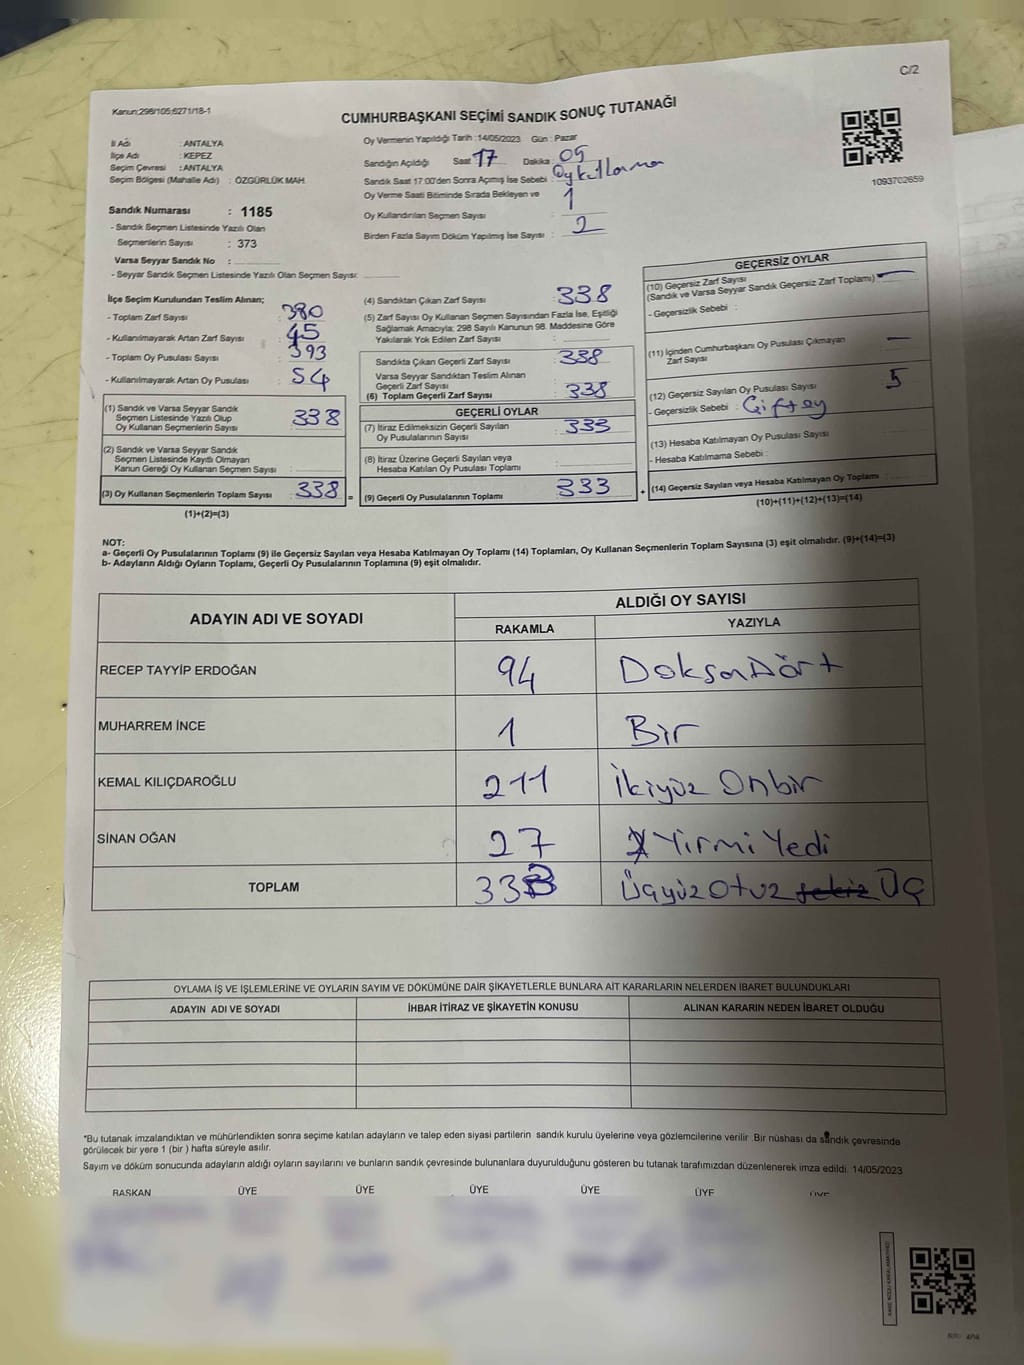 C/2
Kanun;298/105;6271/18-1
CUMHURBAŞKANI SEÇİMİ SANDIK SONUÇ TUTANAĞI
İl Adı : ANTALYA
İlçe Adı : KEPEZ
Seçim Çevresi : ANTALYA
Seçim Bölgesi (Mahalle Adı) : ÖZGÜRLÜK MAH.
Oy Vermenin Yapıldığı Tarih : 14/05/2023 Gün : Pazar
Sandığın Açıldığı Saat 17 Dakika : 05
Sandık Saat 17:00'den Sonra Açımış İse Sebebi : Oy kullanma
Oy Verme Saati Bitiminde Sırada Bekleyen ve
Oy Kullandırılan Seçmen Sayısı : 1
Birden Fazla Sayım Döküm Yapılmış İse Sayısı : 2
1093702659
Sandık Numarası : 1185
- Sandık Seçmen Listesinde Yazılı Olan
Seçmenlerin Sayısı : 373
Varsa Seyyar Sandık No :
- Seyyar Sandık Seçmen Listesinde Yazılı Olan Seçmen Sayısı:
İlçe Seçim Kurulundan Teslim Alınan;
- Toplam Zarf Sayısı : 380
- Kullanılmayarak Artan Zarf Sayısı : 45
- Toplam Oy Pusulası Sayısı : 393
- Kullanılmayarak Artan Oy Pusulası : 54
(1) Sandık ve Varsa Seyyar Sandık
Seçmen Listesinde Yazılı Olup
Oy Kullanan Seçmenlerin Sayısı : 338
(2) Sandık ve Varsa Seyyar Sandık
Seçmen Listesinde Kayıtlı Olmayan
Kanun Gereği Oy Kullanan Seçmen Sayısı :
(3) Oy Kullanan Seçmenlerin Toplam Sayısı : 338 =
(1)+(2)=(3)
(4) Sandıktan Çıkan Zarf Sayısı : 338
(5) Zarf Sayısı Oy Kullanan Seçmen Sayısından Fazla İse, Eşitliği
Sağlamak Amacıyla; 298 Sayılı Kanunun 98. Maddesine Göre
Yakılarak Yok Edilen Zarf Sayısı :
Sandıkta Çıkan Geçerli Zarf Sayısı : 338
Varsa Seyyar Sandıktan Teslim Alınan
Geçerli Zarf Sayısı :
(6) Toplam Geçerli Zarf Sayısı : 338
GEÇERLİ OYLAR
(7) İtiraz Edilmeksizin Geçerli Sayılan
Oy Pusulalarının Sayısı : 333
(8) İtiraz Üzerine Geçerli Sayılan veya
Hesaba Katılan Oy Pusulası Toplamı :
(9) Geçerli Oy Pusulalarının Toplamı : 333 +
GEÇERSİZ OYLAR
(10) Geçersiz Zarf Sayısı
(Sandık ve Varsa Seyyar Sandık Geçersiz Zarf Toplamı) : —
- Geçersizlik Sebebi :
(11) İçinden Cumhurbaşkanı Oy Pusulası Çıkmayan
Zarf Sayısı : —
(12) Geçersiz Sayılan Oy Pusulası Sayısı : 5
- Geçersizlik Sebebi : Çift oy
(13) Hesaba Katılmayan Oy Pusulası Sayısı :
- Hesaba Katılmama Sebebi :
(14) Geçersiz Sayılan veya Hesaba Katılmayan Oy Toplamı :
(10)+(11)+(12)+(13)=(14)
NOT:
a- Geçerli Oy Pusulalarının Toplamı (9) ile Geçersiz Sayılan veya Hesaba Katılmayan Oy Toplamı (14) Toplamları, Oy Kullanan Seçmenlerin Toplam Sayısına (3) eşit olmalıdır. (9)+(14)=(3)
b- Adayların Aldığı Oyların Toplamı, Geçerli Oy Pusulalarının Toplamına (9) eşit olmalıdır.
ADAYIN ADI VE SOYADI
ALDIĞI OY SAYISI
RAKAMLA YAZIYLA
RECEP TAYYİP ERDOĞAN 94 Doksandört
MUHARREM İNCE 1 Bir
KEMAL KILIÇDAROĞLU 211 İkiyüz Onbir
SİNAN OĞAN 27 Yirmi Yedi
TOPLAM 333 Üçyüz Otuz sekiz Üç
OYLAMA İŞ VE İŞLEMLERİNE VE OYLARIN SAYIM VE DÖKÜMÜNE DAİR ŞİKAYETLERLE BUNLARA AİT KARARLARIN NELERDEN İBARET BULUNDUKLARI
ADAYIN ADI VE SOYADI İHBAR İTİRAZ VE ŞİKAYETİN KONUSU ALINAN KARARIN NEDEN İBARET OLDUĞU
*Bu tutanak imzalandıktan ve mühürlendikten sonra seçime katılan adayların ve talep eden siyasi partilerin sandık kurulu üyelerine veya gözlemcilerine verilir. Bir nüshası da sandık çevresinde
görülecek bir yere 1 (bir) hafta süreyle asılır.
Sayım ve döküm sonucunda adayların aldığı oyların sayılarını ve bunların sandık çevresinde bulunanlara duyurulduğunu gösteren bu tutanak tarafımızdan düzenlenerek imza edildi. 14/05/2023
BAŞKAN ÜYE ÜYE ÜYE ÜYE ÜYE ÜYE